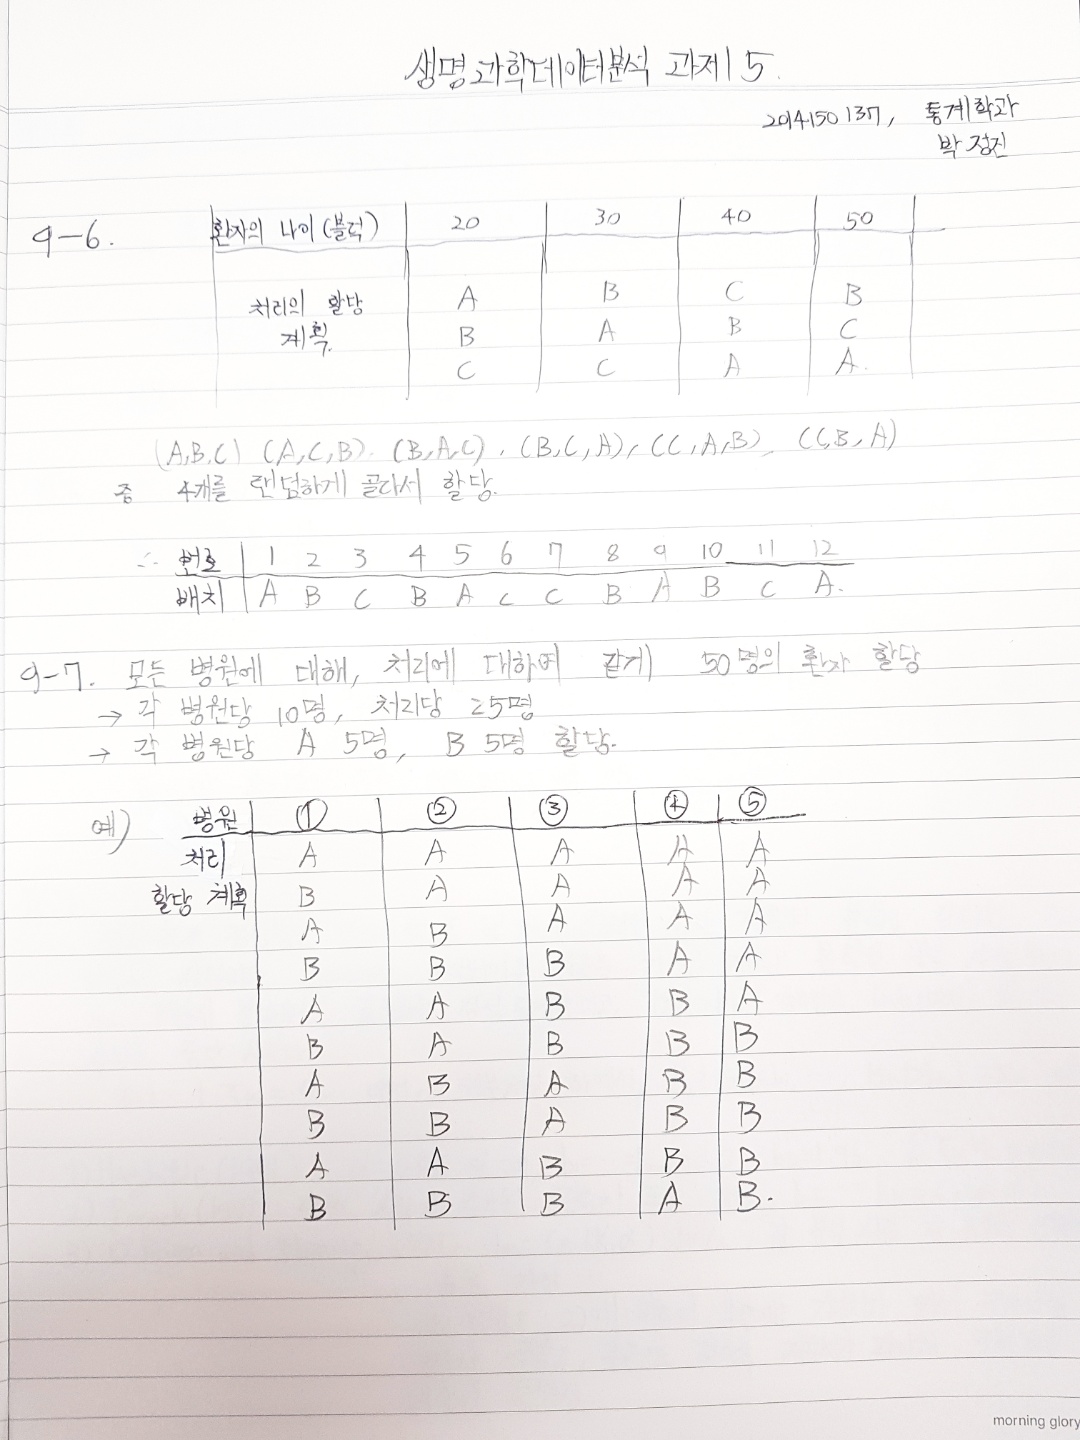 생명과학데이터분석 과제 5.
2014150137, 통계학과
박정진
9-6.
환자의 나이(블럭) 20 30 40 50
처리의 할당 A B C B
계획. B A B C
C C A A.
(A,B,C) (A,C,B). (B,A,C), (B,C,A), (C,A,B), (C,B,A)
중 4개를 랜덤하게 골라서 할당.
∴ 번호 1 2 3 4 5 6 7 8 9 10 11 12
배치 A B C B A C C B A B C A.
9-7. 모든 병원에 대해, 처리에 대하여 같게 50명의 환자 할당
→ 각 병원당 10명, 처리당 25명
→ 각 병원당 A 5명, B 5명 할당.
예) 병원 ① ② ③ ④ ⑤
처리 A A A A A
할당 계획 B A A A A
A B A A A
B B B A A
A A B B A
B A B B B
A B A B B
B B A B B
A A B B B
B B B A B.
morning glory